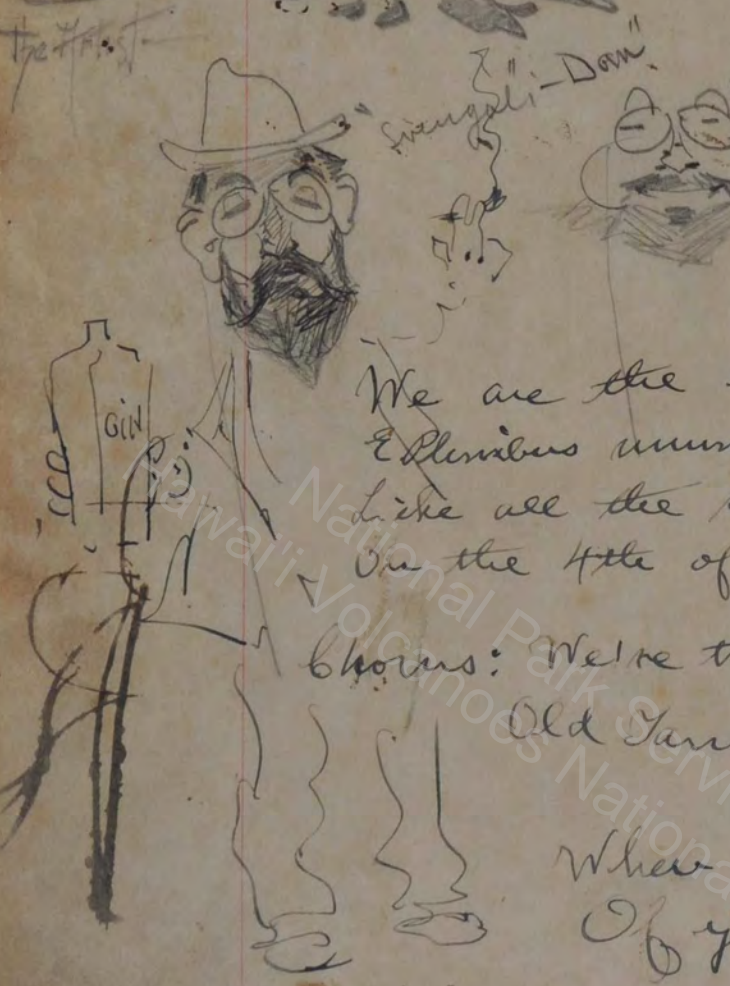 The Artist
"Svengali-Dom".
GIN
We are the
E Pluribus unum
Like all the
On the 4th of
Chorus: We're t
Old Yan
When
Of y
National Park Servi
Hawai'i Volcanoes Nationa